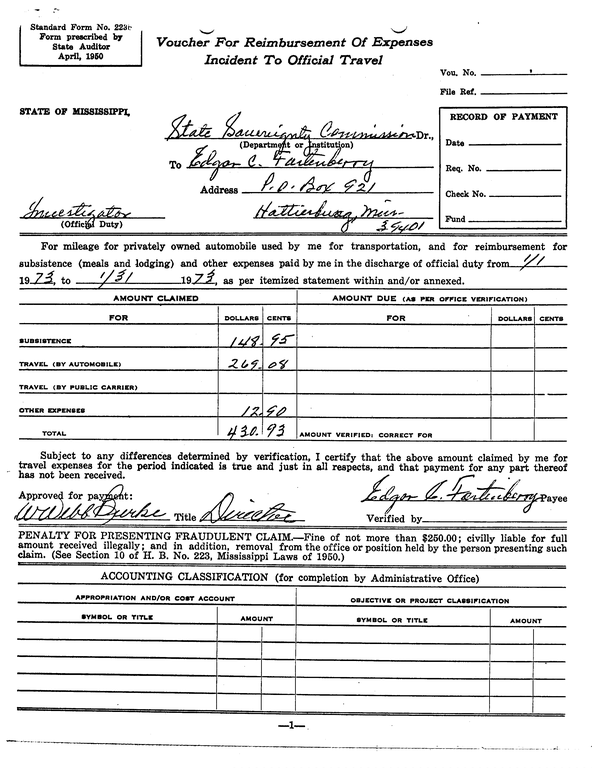 Standard Form No. 223
Form prescribed by
State Auditor
April, 1950
Voucher For Reimbursement Of Expenses
Incident To Official Travel
Vou. No.
File Ref.
STATE OF MISSISSIPPI,
RECORD OF PAYMENT
State Sovereignty Commission Dr.,
(Department or Institution)
Date
To Edgar C. Fortenberry
Req. No.
Address P.O. Box 921
Check No.
Investigator Hattiesburg, Miss. Fund
(Official Duty) 39401
For mileage for privately owned automobile used by me for transportation, and for reimbursement for
subsistence (meals and lodging) and other expenses paid by me in the discharge of official duty from 1/1
1973, to 1/31 1973, as per itemized statement within and/or annexed.
AMOUNT CLAIMED AMOUNT DUE (AS PER OFFICE VERIFICATION)
FOR DOLLARS CENTS FOR DOLLARS CENTS
SUBSISTENCE 148.95
TRAVEL (BY AUTOMOBILE) 269.08
TRAVEL (BY PUBLIC CARRIER)
OTHER EXPENSES 12.90
TOTAL 430.93 AMOUNT VERIFIED: CORRECT FOR
Subject to any differences determined by verification, I certify that the above amount claimed by me for
travel expenses for the period indicated is true and just in all respects, and that payment for any part thereof
has not been received.
Approved for payment: Edgar C. Fortenberry Payee
W Webb Burke Title Director Verified by
PENALTY FOR PRESENTING FRAUDULENT CLAIM.—Fine of not more than $250.00; civilly liable for full
amount received illegally; and in addition, removal from the office or position held by the person presenting such
claim. (See Section 10 of H. B. No. 223, Mississippi Laws of 1950.)
ACCOUNTING CLASSIFICATION (for completion by Administrative Office)
APPROPRIATION AND/OR COST ACCOUNT OBJECTIVE OR PROJECT CLASSIFICATION
SYMBOL OR TITLE AMOUNT SYMBOL OR TITLE AMOUNT
—1—